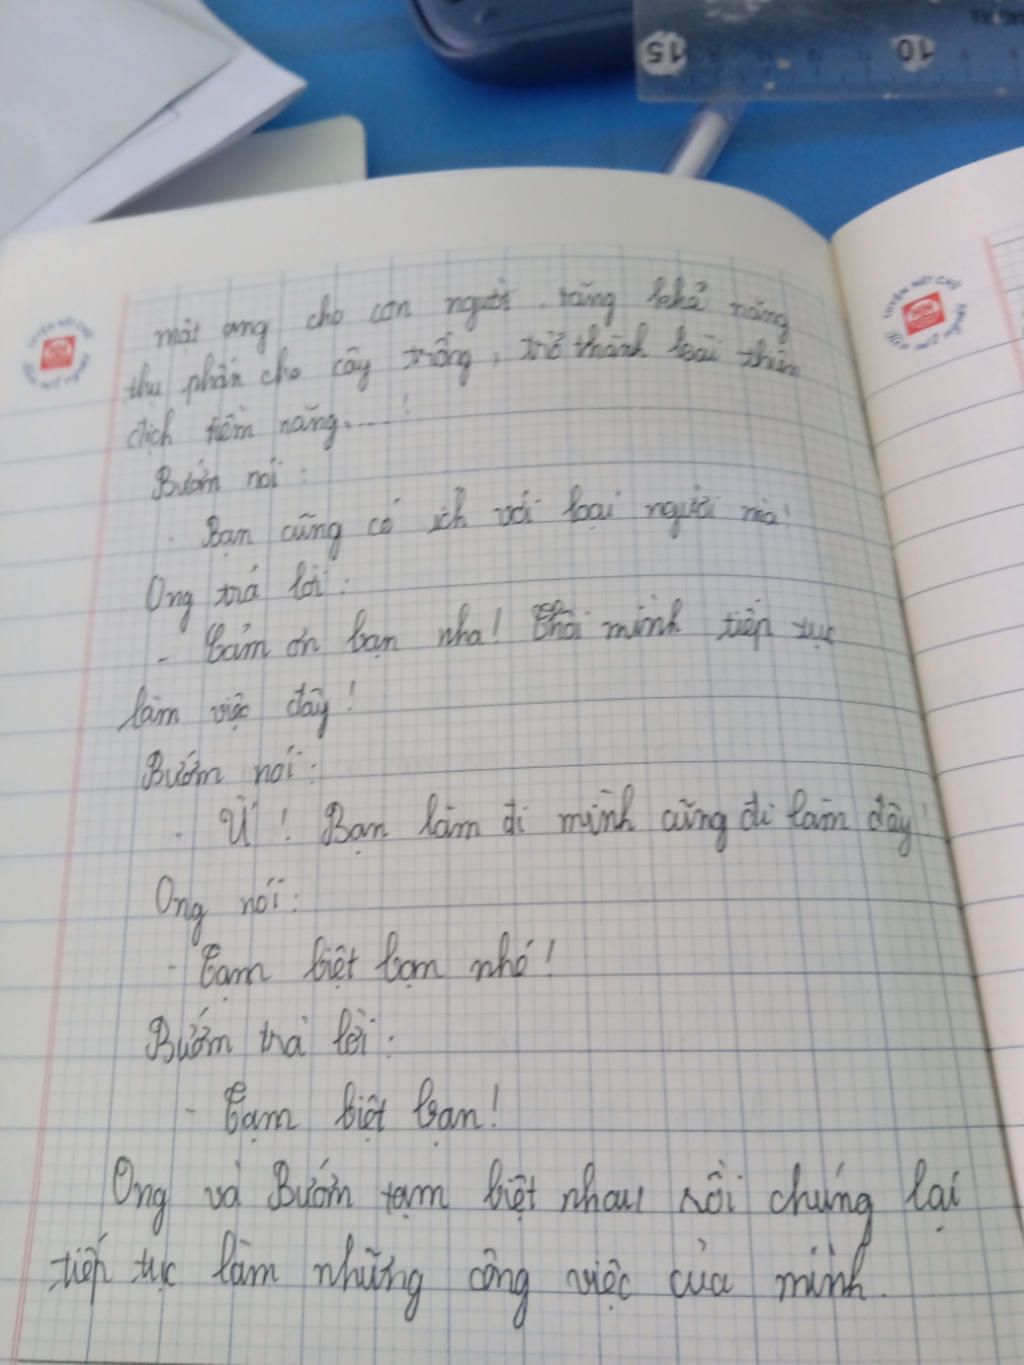 mật ong cho con người, tăng khả năng
thụ phấn cho cây trồng, trở thành loài thiên
địch tiềm năng....!
Bướm nói:
- Bạn cũng có ích với loại người mà!
Ong trả lời:
- Cảm ơn bạn nha! Thôi mình tiếp tục
làm việc đây!
Bướm nói:
- Ừ! Bạn làm đi mình cũng đi làm đây!
Ong nói:
- Tạm biệt bạn nhé!
Bướm trả lời:
- Tạm biệt bạn!
Ong và Bướm tạm biệt nhau rồi chúng lại
tiếp tục làm những công việc của mình.
15
10
LUYỆN NÉT CHỮ
LUYỆN NÉT CHỮ